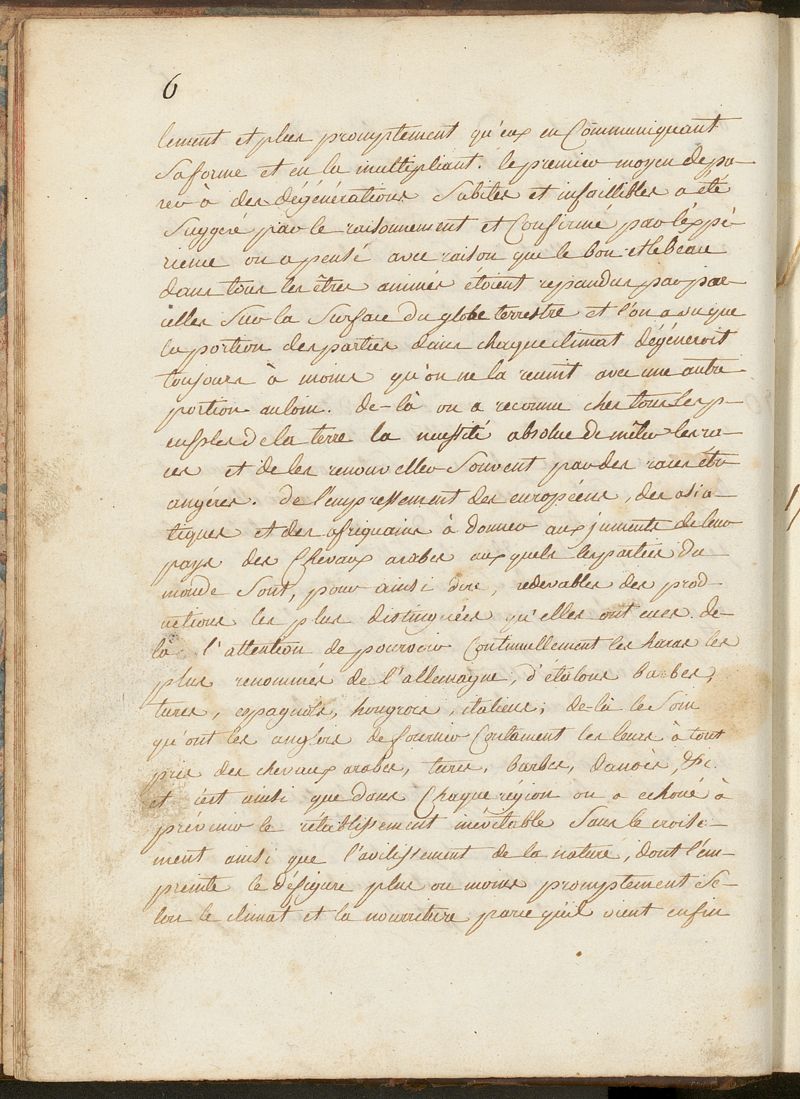 6
lement et plus promptement qu'eux en Communiquant
Sa forme et en la multipliant. le premier moyen de pa-
rer à des dégénérations Subites et infaillibles a été
Suggéré par le raisonnement et Confirmé par l'expé-
rience on a pensé avec raison que le bon et le beau
dans tous les êtres animés étoient repandus par par-
celles Sur la Surface du globe terrestre et l'on a vu que
la portion des parties dans chaque climat dégéneroit
toujours à moins qu'on ne la reunit avec une autre
portion au loin. de-là on a reconnu chez tous les p-
euples de la terre la necessité absolue de mêler les ra-
ces et de les renouveller Souvent par des races étr-
angéres. de l'empressement des européens, des asia-
tiques et des afriquains à donner aux juments de leur
pays des Chevaux arabes auxquels les parties du
monde Sont, pour ainsi dire, redevables des prod-
uctions les plus distinguées qu'elles ont eues. de-
là l'attention de pourvoir Continuellement les haras les
plus renommés de l'allemagne, d'étalons barbes,
turcs, espagnols, hongrois, italiens; de-là le Soin
qu'ont les anglois de fournir les leurs à tout
prix des chevaux arabes, turcs, barbes, danois, &c.
et c'est ainsi que dans Chaque région on a echoué à
prévenir le rétablissement inévitable Sans le croise-
ment ainsi que l'avilissement de la nature, dont l'em-
preinte le défigure plus ou moins promptement Se-
lon le climat et la nourriture parce qu'il vient enfin